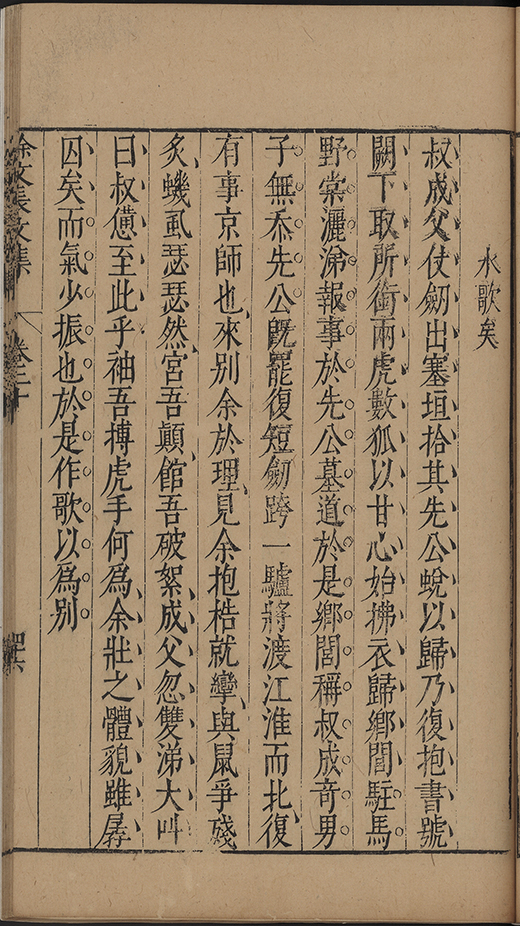 水歌矣
叔成父仗劒出塞垣拾其先公蛻以歸乃復抱書號
闕下取所銜兩虎數狐以甘心始拂衣歸鄉閭駐馬
野棠灑涕報事於先公墓道於是鄉閭稱叔成奇男
子無忝先公旣罷復短劒跨一驢將渡江淮而北復
有事京師也來別余於理見余抱梏就攣與鼠爭殘
炙蟣虱瑟瑟然宮吾顚館吾破絮成父忽雙涕大叫
曰叔憊至此乎袖吾搏虎手何爲余壯之體貌雖孱
囚矣而氣少振也於是作歌以爲别
徐文長文集
卷三十